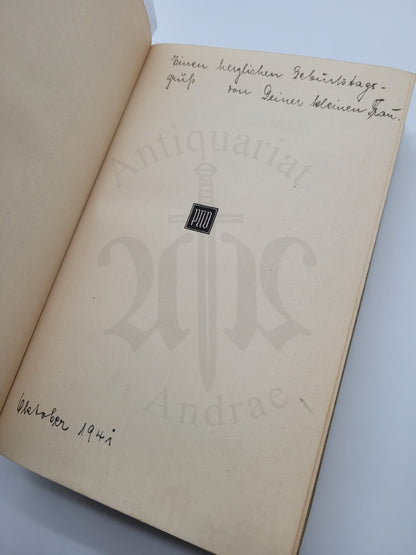 Einen herzlichen Geburtstags-
gruß von Deiner kleinen Frau.
Antiquariat
Andrae
Oktober 1941